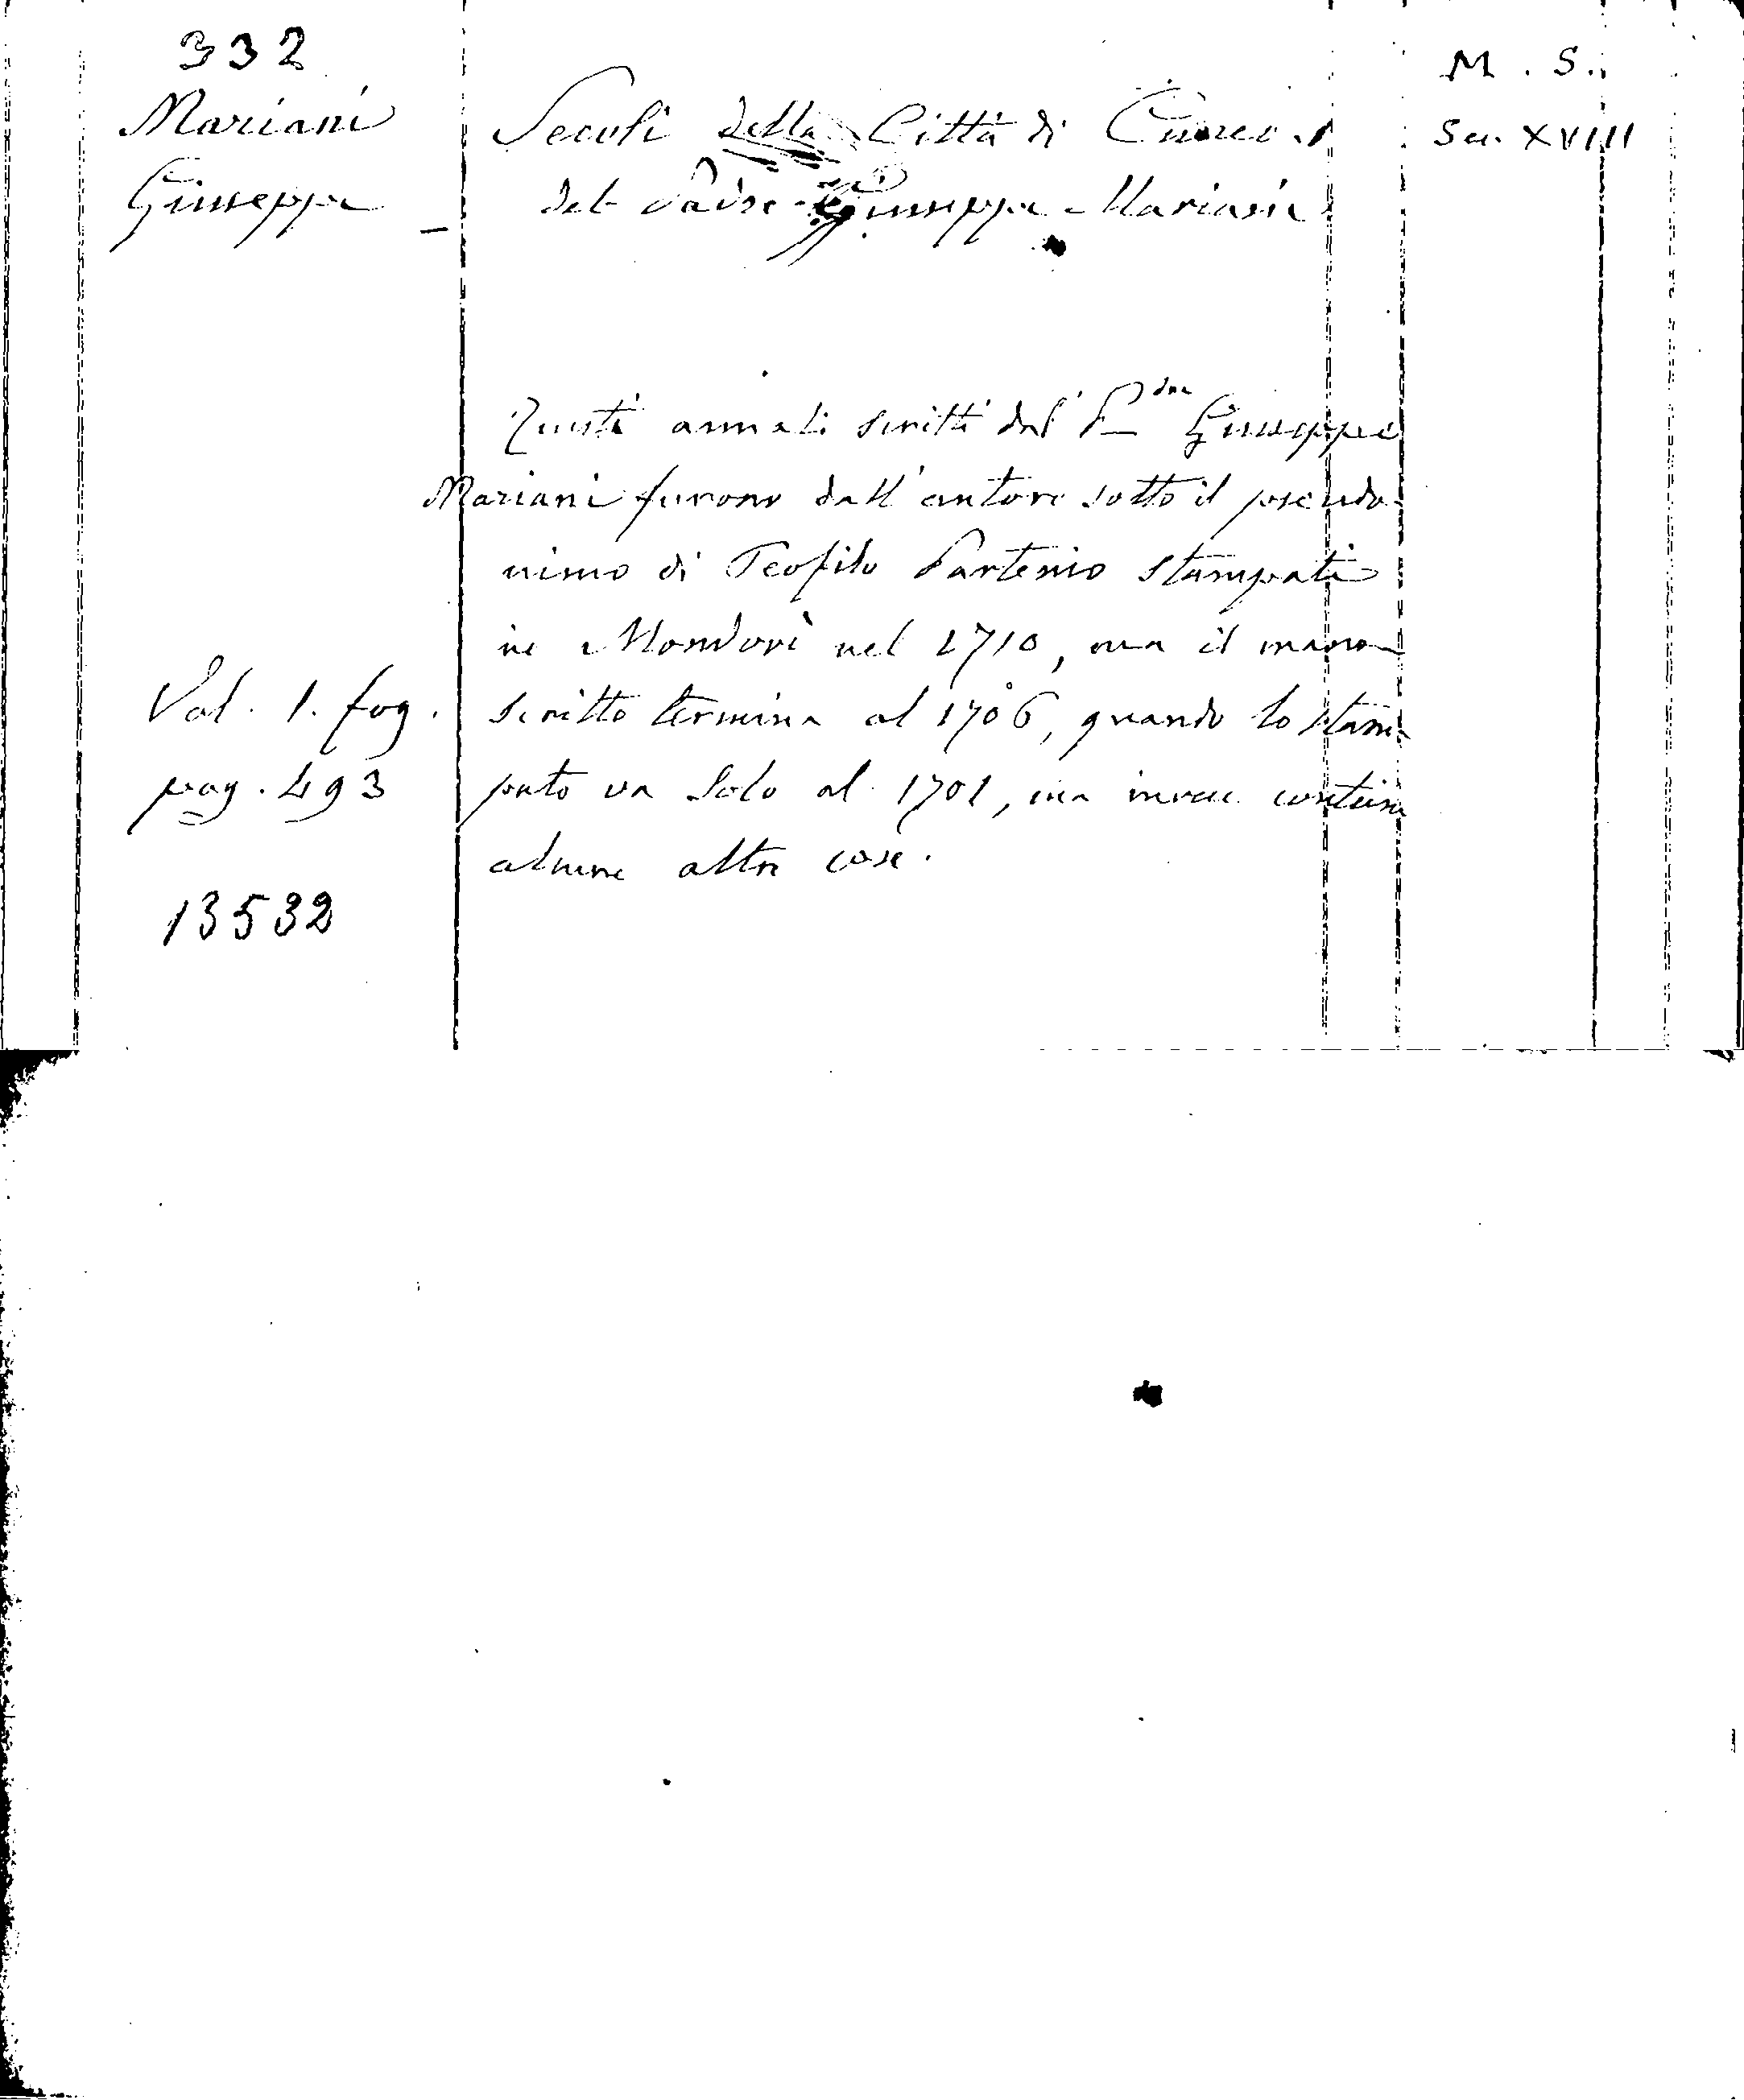 332
Mariani
Giuseppe
Secoli della Città di Cuneo.
del Padre Giuseppe Mariani
M. S.
Sec. XVIII
Questi annali scritti dal P.dre Giuseppe
Mariani furono dall'autore sotto il pseudo
nimo di Teofilo Partenio stampati
in Mondovì nel 1710, ma il mano
scritto termina al 1706, quando lo stam
pato va solo al 1701, ma invece contiene
alcune altre cose.
Vol. 1. fog.
pag. 493
13532